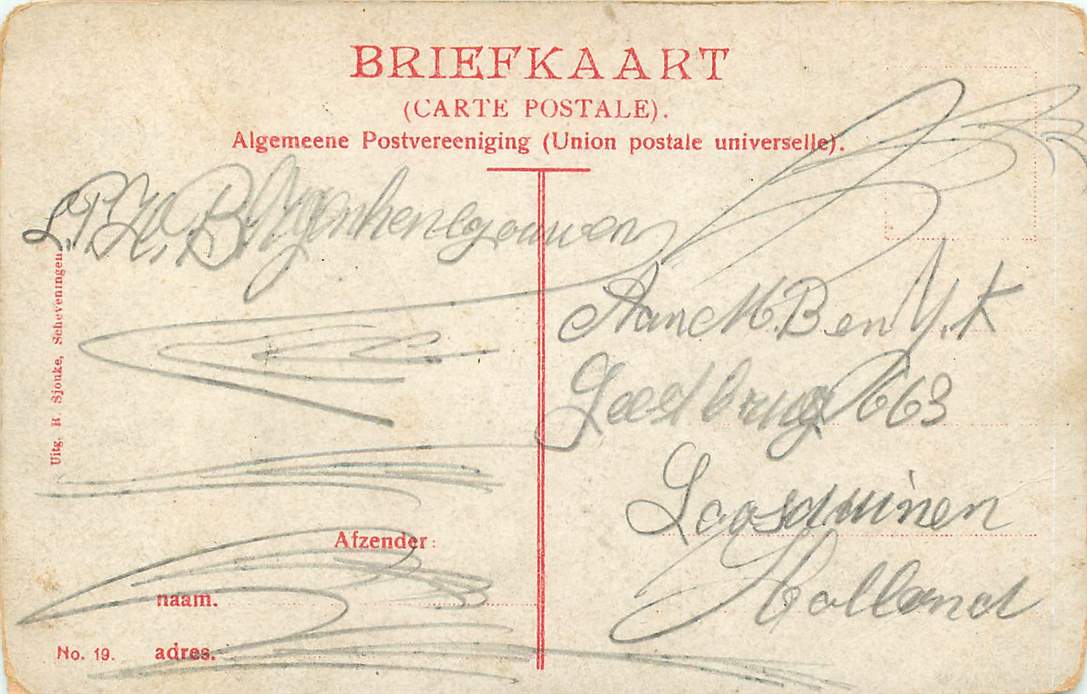 BRIEFKAART
(CARTE POSTALE).
Algemeene Postvereeniging (Union postale universelle).
Uitg. H. Sjouke, Scheveningen.
Aan M. B en Y. K
663
Loosduinen
Holland
Afzender:
naam.
No. 19. adres.